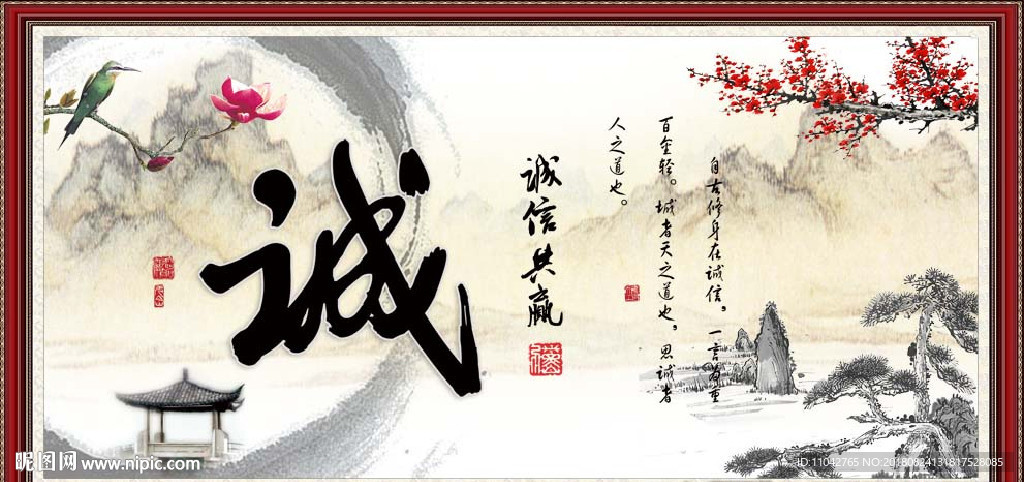 诚
诚信共赢
自古修身在诚信，一言为重
百金轻。城者天之道也，思诚者
人之道也。
昵图网 www.nipic.com
ID:11042765 NO:20180824131817528085